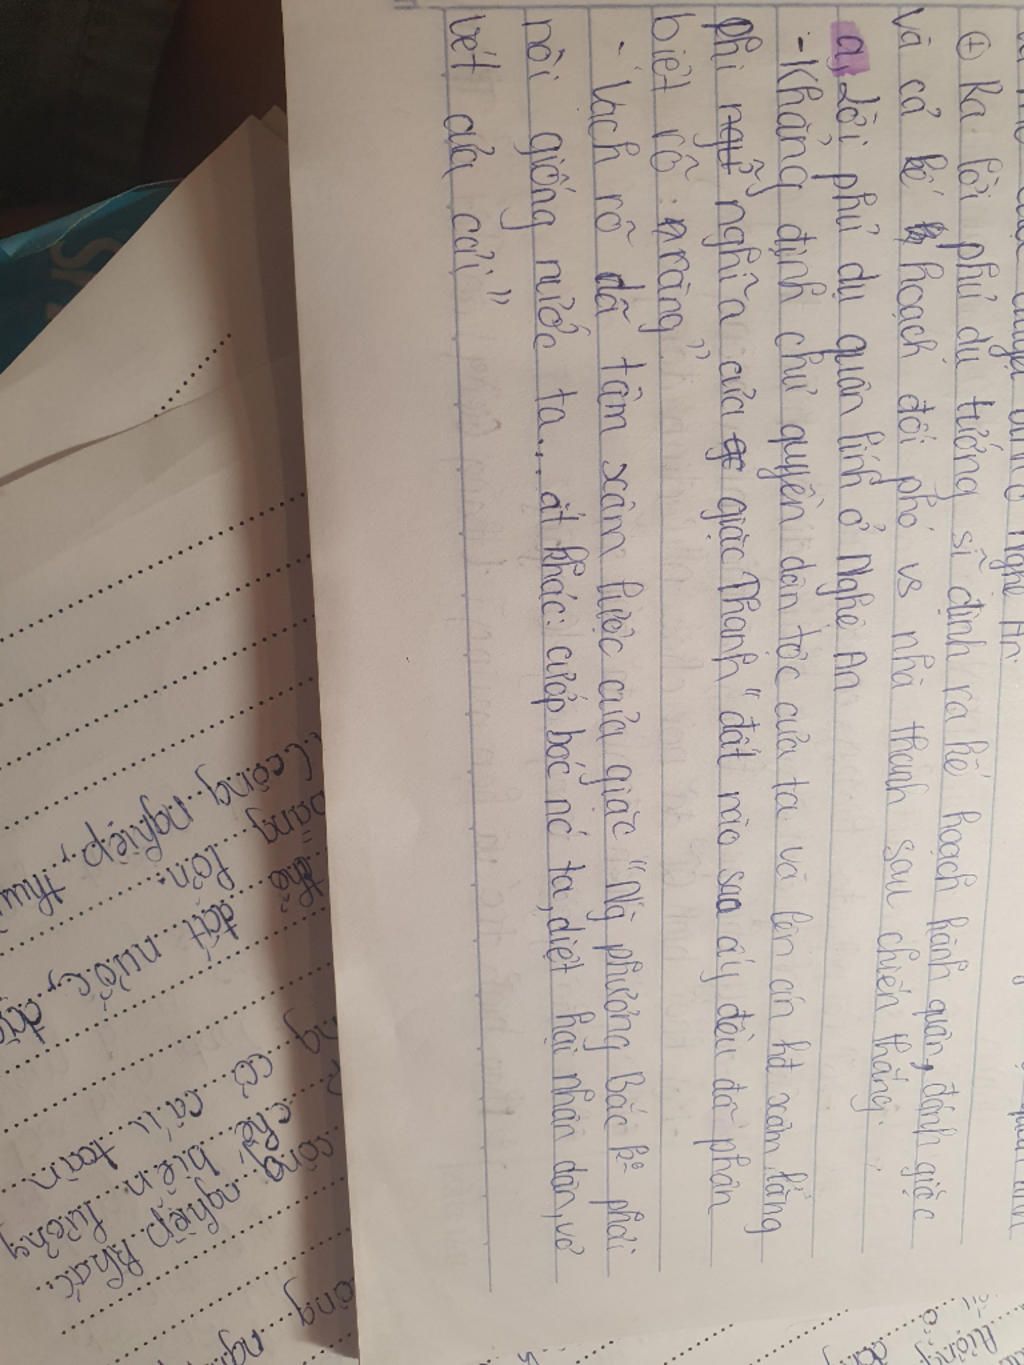 Nghệ An.
⊕ Ra lời phủ dụ tướng sĩ định ra kế hoạch hành quân, đánh giặc
và cả kế hoạch đối phó vs nhà thanh sau chiến thắng.
a, Lời phủ dụ quân lính ở Nghệ An
- Khẳng định chủ quyền dân tộc của ta và lên án hđ xâm lăng
phi nghĩa của giặc Thanh "đất nào sao ấy đều đã phân
biệt rõ ràng"
- Vạch rõ dã tâm xâm lược của giặc "Ng phương Bắc kº phải
nòi giống nước ta... ắt khác: cướp bóc nc ta, diệt hại nhân dân, vơ
vét của cải"
công nghiệp,
đất nước
lớn.
cơ cấu
chế biến
công nghiệp khác.
toàn
lương